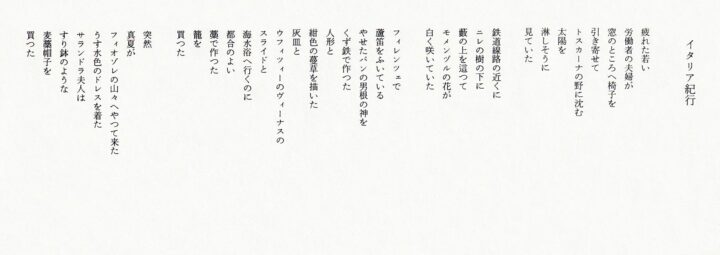 イタリア紀行
疲れた若い
労働者の夫婦が
窓のところへ椅子を
引き寄せて
トスカーナの野に沈む
太陽を
淋しそうに
見ていた
鉄道線路の近くに
ニレの樹の下に
藪の上を這つて
モメンヅルの花が
白く咲いていた
フィレンツェで
蘆笛をふいている
やせたパンの男根の神を
くず鉄で作つた
人形と
紺色の蔓草を描いた
灰皿と
ウフィツィーのヴィーナスの
スライドと
海水浴へ行くのに
都合のよい
藁で作つた
籠を
買つた
突然
真夏が
フィオゾレの山々へやつて来た
うす水色のドレスを着た
サランドラ夫人は
すり鉢のような
麦藁帽子を
買つた